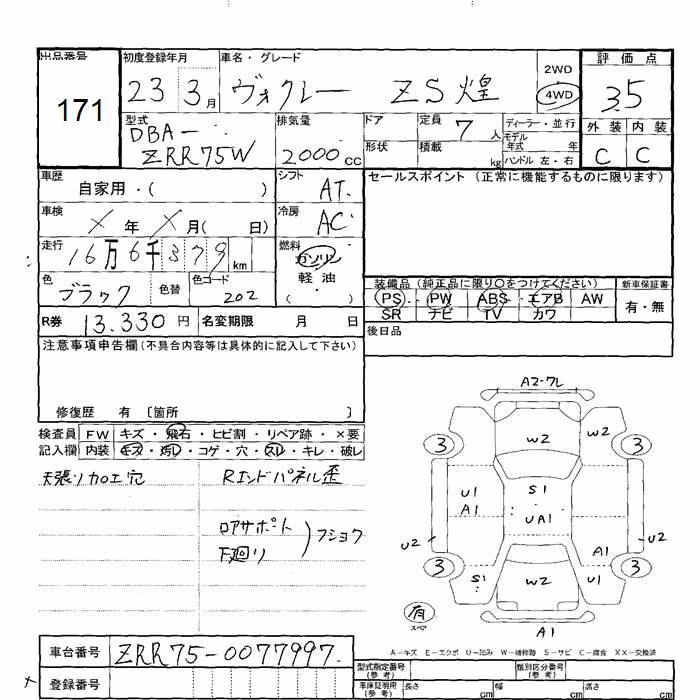 出品番号 171
初度登録年月 23 3月
車名・グレード ヴォクシー ZS煌
2WD 4WD
評価点 3.5
外装 C 内装 C
型式 DBA- ZRR75W
排気量 2000cc
ドア
形状
定員 7人
積載 kg
ディーラー・並行
モデル年式 年
ハンドル 左・右
車歴 自家用・( )
シフト AT
セールスポイント (正常に機能するものに限ります)
車検 ×年 ×月( 日)
冷房 AC
走行 16万6千379km
燃料 ガソリン 軽油 ( )
色 ブラック 色替 色コード 202
装備品 (純正品に限り○をつけてください)
PS PW ABS エアB AW
SR ナビ TV カワ
新車保証書 有・無
R券 13.330円 名変期限 月 日
後日品
注意事項申告欄(不具合内容等は具体的に記入して下さい)
修復歴 有 〔箇所 〕
検査員記入欄
FW キズ・飛石・ヒビ割・リペア跡・×要
内装 キズ・汚レ・コゲ・穴・スレ・キレ・破レ
天張リカロエ穴
Rエンドパネル歪
ロアサポート 下廻り フショク
A2-ワレ
W2 W2
3 3
S1
U1 A1
UA1
U2 U2
A1
3 3
S1 W2 U1
有 スペア
A1
A-キズ E-エクボ U-凹み W-補修跡 S-サビ C-腐食 XX-交換済
車台番号 ZRR75-0077997
登録番号
型式指定番号(参考) 類別区分番号(参考)
車庫証明用(参考) 長さ cm 幅 cm 高さ cm